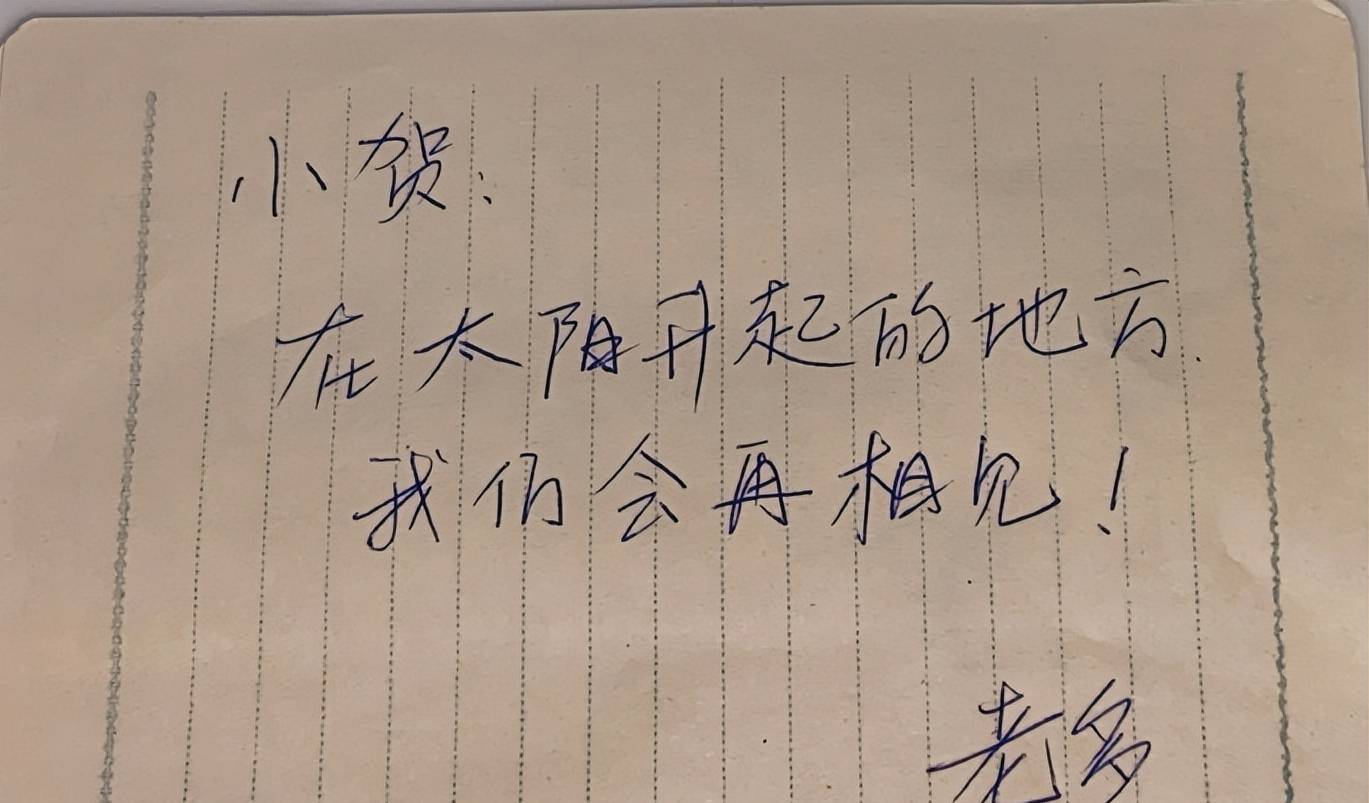 小贺:
在太阳升起的地方.
我们会再相见!
老多